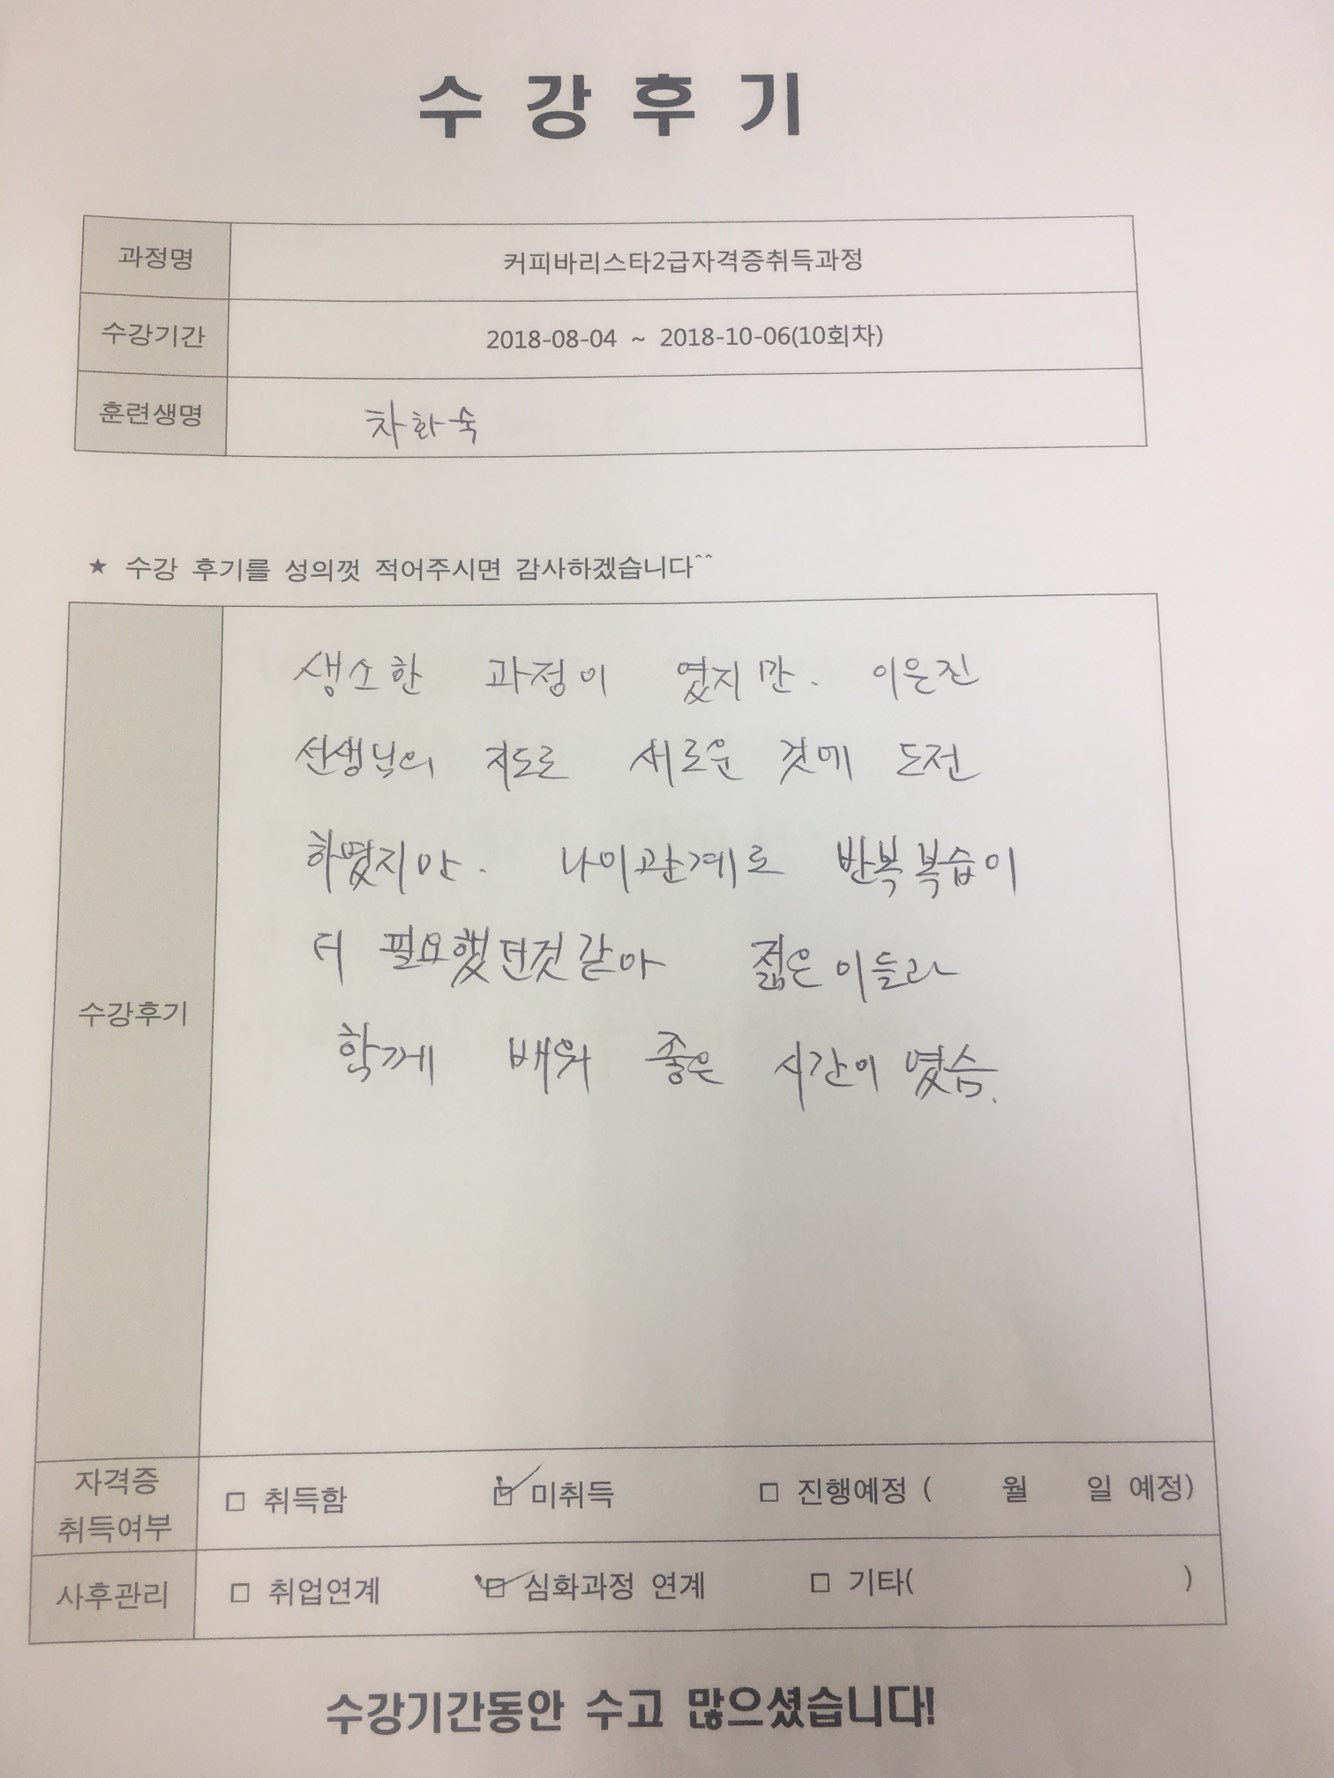 수강후기
과정명 커피바리스타2급자격증취득과정
수강기간 2018-08-04 ~ 2018-10-06(10회차)
훈련생명 차화숙
★ 수강 후기를 성의껏 적어주시면 감사하겠습니다^^
수강후기
생소한 과정이 였지만. 이은진
선생님의 지도로 새로운 것에 도전
하였지만. 나이관계로 반복복습이
더 필요했던것같아 젊은이들과
함께 배워 좋은 시간이 였슴.
자격증
취득여부
□ 취득함 ☑ 미취득 □ 진행예정 ( 월 일 예정)
사후관리 □ 취업연계 ☑ 심화과정 연계 □ 기타( )
수강기간동안 수고 많으셨습니다!